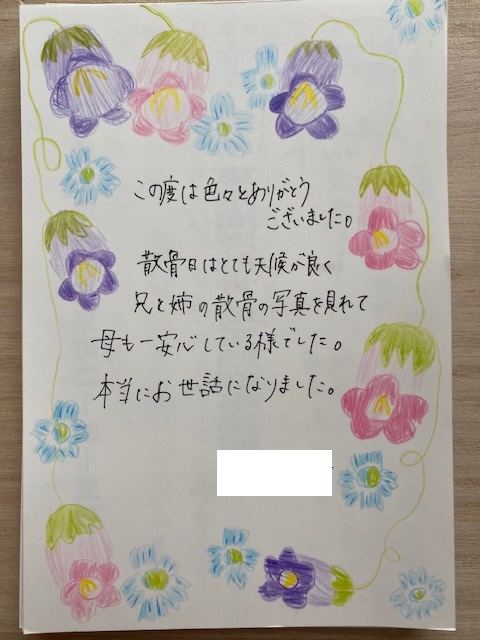 この度は色々とありがとう
ございました。
散骨日はとても天候が良く
兄と姉の散骨の写真を見れて
母も一安心している様でした。
本当にお世話になりました。